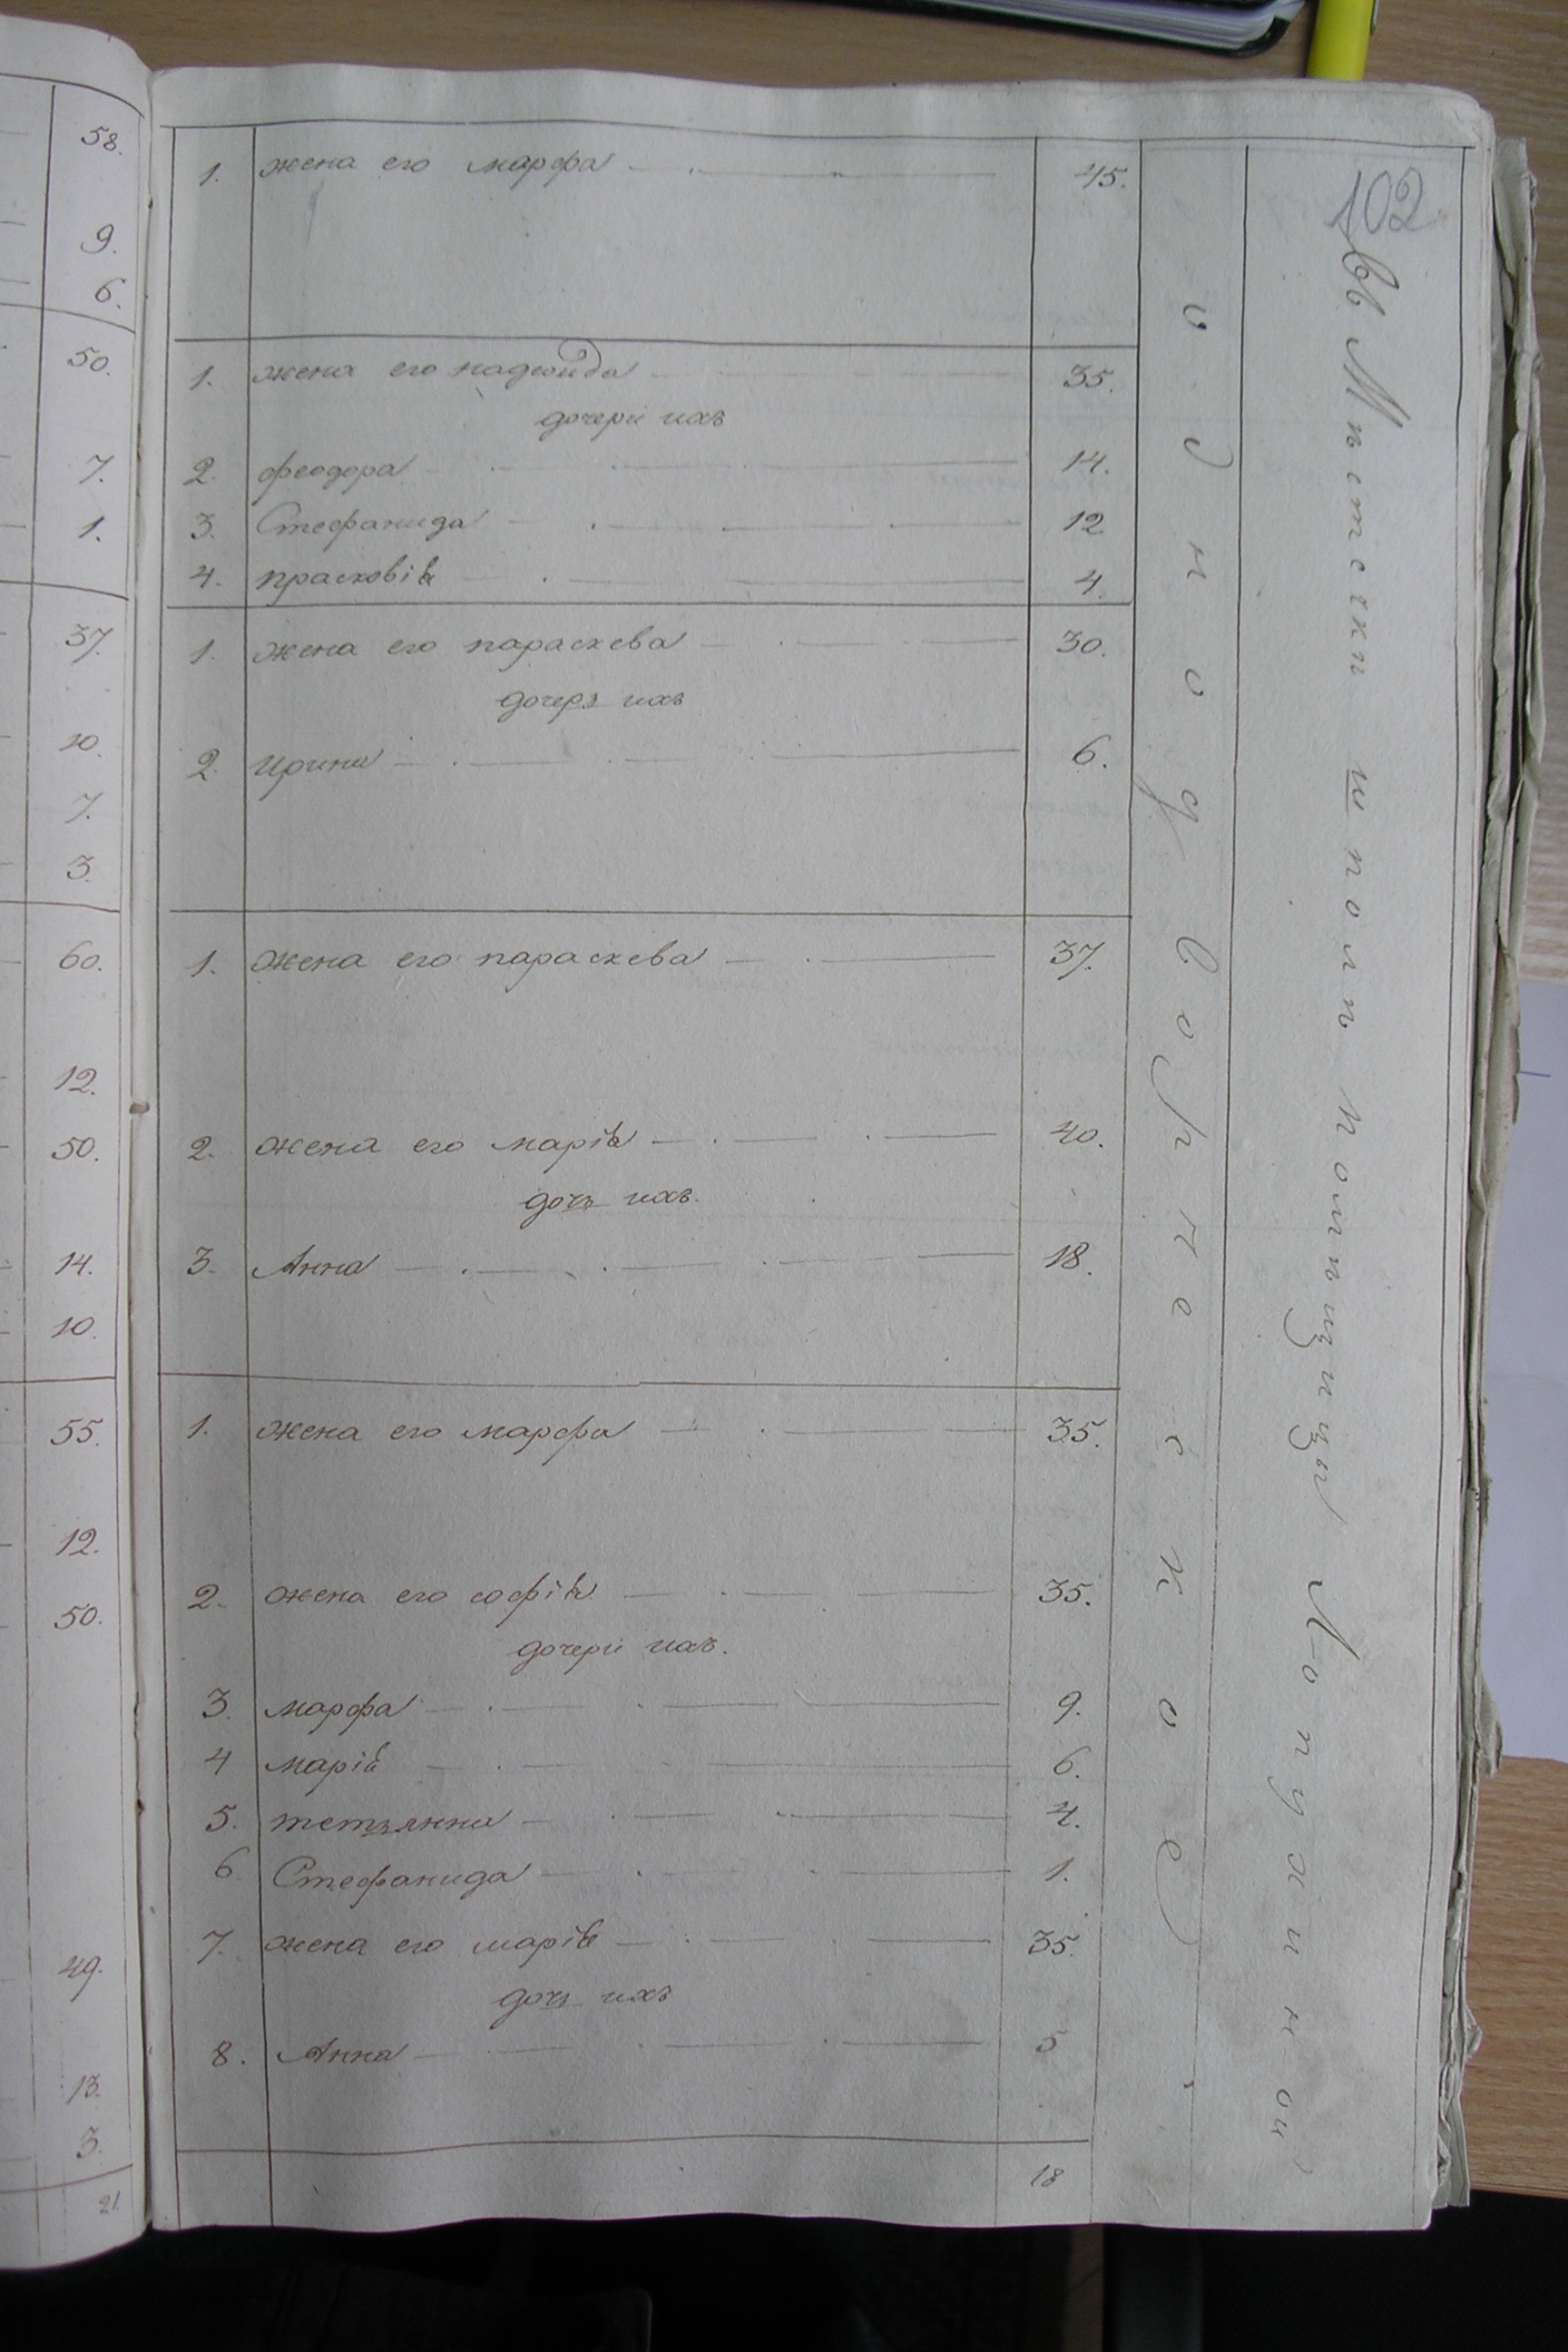 58.
9.
6.
50.
7.
1.
37.
10.
7.
3.
60.
12.
50.
14.
10.
55.
12.
50.
49.
13.
3.
21.
102
1. жена его марфа 45.
1. жена его надежда 35.
дочери ихъ
2. феодора 14.
3. Стефанида 12
4. прасковія 4.
1. жена его параскева 30.
дочерь ихъ
2. ирина 6.
1. жена его параскева 37.
2. жена его марія 40.
дочь ихъ.
3. Анна 18.
1. жена его марфа 35.
2. жена его софія 35.
дочери ихъ.
3. марфа 9.
4 марія 6.
5. тетьянна 4.
6 Стефанида 1.
7. жена его марія 35.
дочь ихъ
8. Анна 5
18